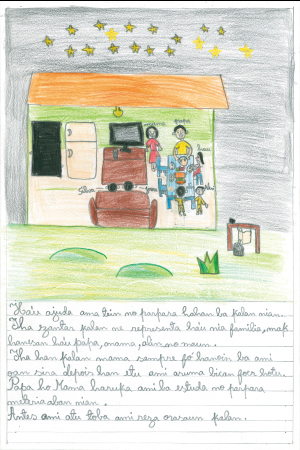 mama
papa
Silva
Ha'u ajuda ama tein no prepara hahan ba jalan nian.
Iha jantar jalan ne representa ha'i nia familia, mak
hanesan ha'i papa, mama, alin no maun.
Iha han jalan mama sempre fó hanoin ba ami
oan sira depois han atu ami aruma bikan foer hotu.
Papa ho Mama haruka ami ba estuda no prepara
materia aban nian.
Antes ami atu toba ami reza orasaun jalan.